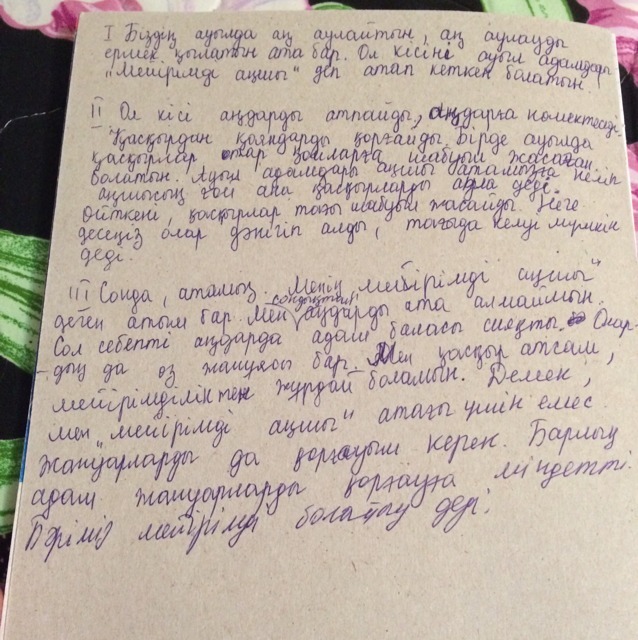 I Біздің ауылда аң аулайтын, аң аулауды
ермек қылатын ата бар. Ол кісіні ауыл адамдары
"Мейірімді аңшы" деп атап кеткен болатын
II Ол кісі аңдарды атпайды, аңдарға көмектеседі.
Қасқырдан қояндарды қорғайды. Бірде ауылда
қасқырлар отар қойларға шабуыл жасаған
болатын. Ауыл адамдары аңшы атамызға келіп
аңшысың ғой ана қасқырларды деді.
Өйткені, қасқырлар тағы шабуыл жасайды. Неге
десеңіз олар дәнігіп алды, тағыда келуі мүмкін
деді.
III Сонда, атамыз. Менің "мейірімді аңшы"
деген атым бар. Мен сондықтан аңдарды ата алмаймын.
Сол себепті аңдарда адам баласы сияқты. Олар-
дың да өз жанұясы бар. Мен қасқыр атсам,
мейірімділіктен жұрдай боламын. Демек,
мен "мейірімді аңшы" атағы үшін емес
жануарларды да қорғауым керек. Барлық
адам жануарларды қорғауға міндетті.
Бәріміз мейірімді болайық деді.